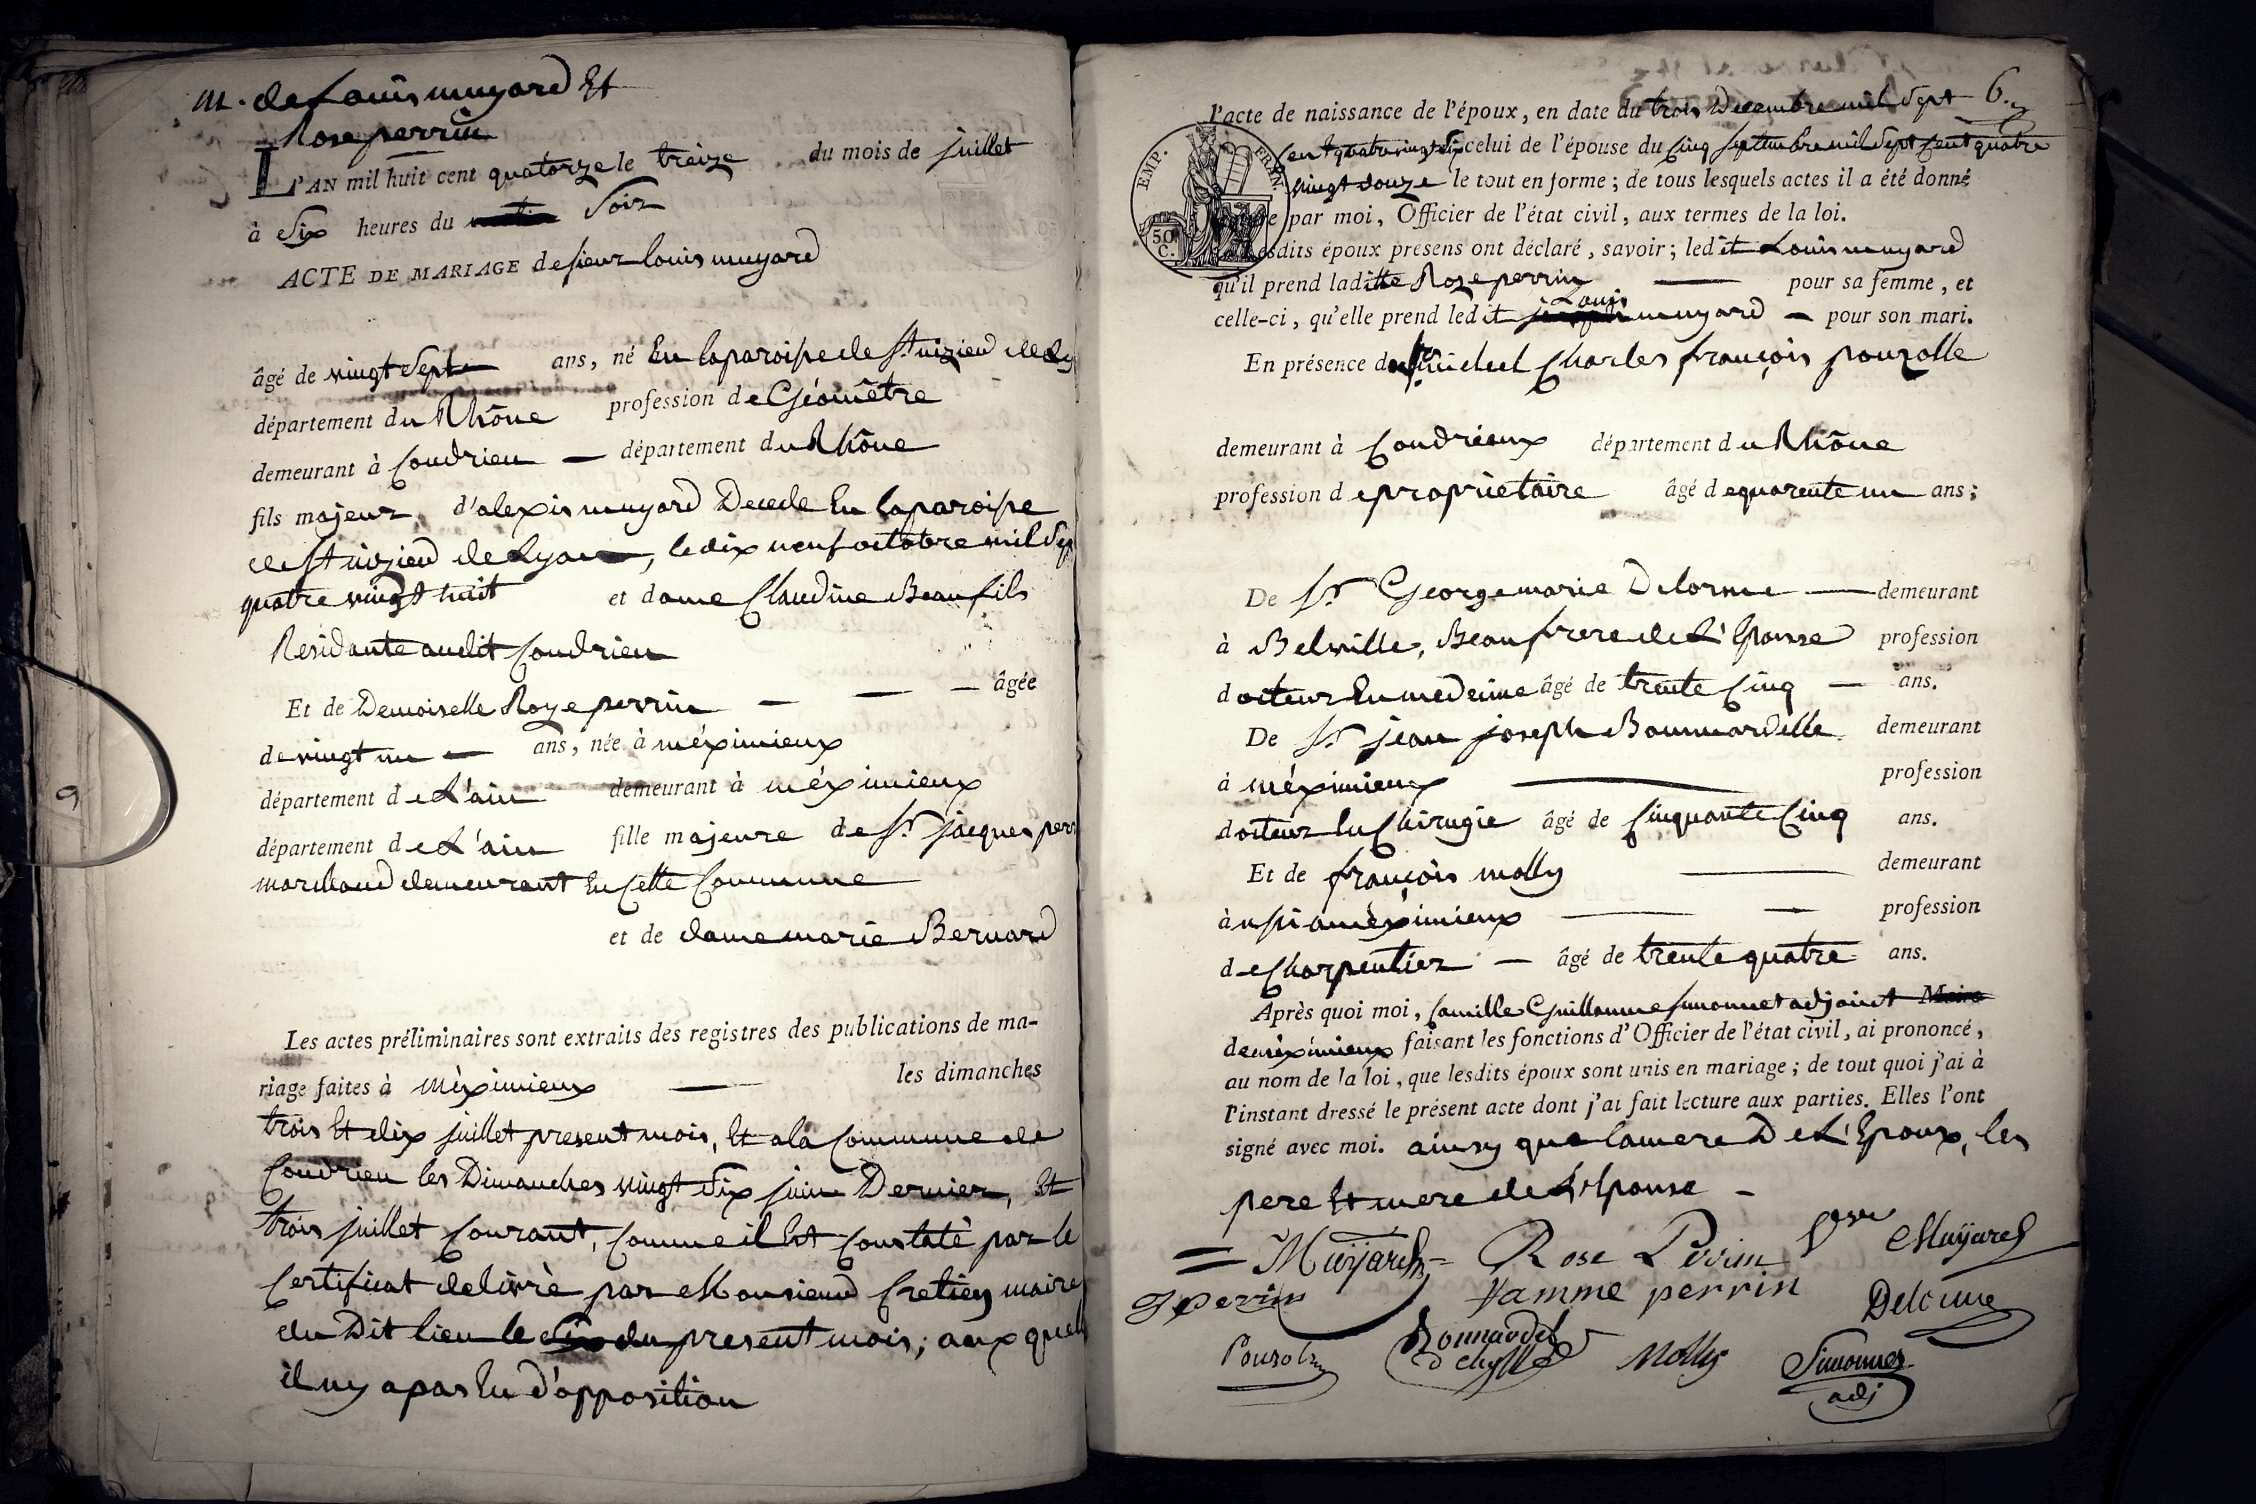 M. de Louis muyard Et
Rose perrin
L'AN mil huit cent quatorze le treize du mois de juillet
à Six heures du Soir
ACTE DE MARIAGE de sieur louis muyard
âgé de vingt Sept ans, né En la paroisse de St. nizied de Ly
département du Rhône profession de Géomêtre
demeurant à Condrieu — département du Rhône
fils majeur d'alexis muyard Decede En la paroisse
de St nizied de Lyon, le dix neuf octobre mil Sep
quatre vingt huit et dame Claudine Beaufils
Residante audit Condrieu
Et de Demoiselle Roze perrin — — — âgée
de vingt un — ans, née à méximieux
département de L'ain demeurant à méximieux
département de L'ain fille majeure de Sr. jacques perr
marchand demeurant En Cette Commune
et de dame marie Bernard
Les actes préliminaires sont extraits des registres des publications de ma-
riage faites à Méximieux — les dimanches
trois Et dix juillet present mois, Et a la Commune de
Condrieu les Dimanches vingt Six juin Dernier, Et
trois juillet Courant, Comme il Est Constaté par le
Certificat delivré par Monsieur Cretien maire
du Dit lieu le Six du present mois; aux quels
il ny a pas Eu d'opposition
6.
l'acte de naissance de l'époux, en date du trois Decembre mil Sept
cent quatre vingt Six celui de l'épouse du Cinq Septembre mil Sept Cent quatre
vingt douze le tout en forme; de tous lesquels actes il a été donné
lecture par moi, Officier de l'état civil, aux termes de la loi.
EMP. FRAN.
50 C.
Lesdits époux présens ont déclaré, savoir; ledit Louis muyard
qu'il prend laditte Roze perrin — pour sa femme, et
Louis
celle-ci, qu'elle prend ledit muyard — pour son mari.
En présence de Sr. michel Charles françois pouzolle
demeurant à Condrieux département du Rhône
profession de propriétaire âgé de quarente un ans;
De Sr. George marie Delorme — demeurant
à Belville, Beaufrere de L'Epouse profession
docteur En medecine âgé de trente Cinq — ans.
De Sr. jean joseph Bonnardelle demeurant
à méximieux — profession
docteur En Chirugie âgé de Cinquante Cinq ans.
Et de françois molly — demeurant
à méximieux — — profession
de Charpentier — âgé de trente quatre ans.
Après quoi moi, Camille Guillaume Simonnet adjoint Maire
de méximieux faisant les fonctions d'Officier de l'état civil, ai prononcé,
au nom de la loi, que lesdits époux sont unis en mariage; de tout quoi j'ai à
l'instant dressé le présent acte dont j'ai fait lecture aux parties. Elles l'ont
signé avec moi. ainsy que la mere De L'Epoux, les
pere Et mere de L'Epouse —
Muyard Rose Perrin Veve Muyard
J perrin famme perrin Delorme
Pouzol Bonnardel Molly Simonnet
adj